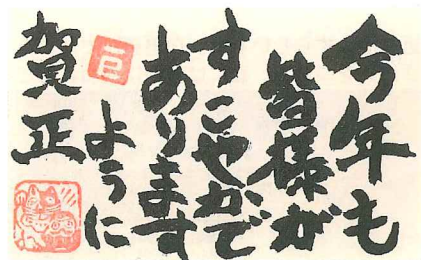 今年も
皆様が
すこやかで
あります
ように
賀正